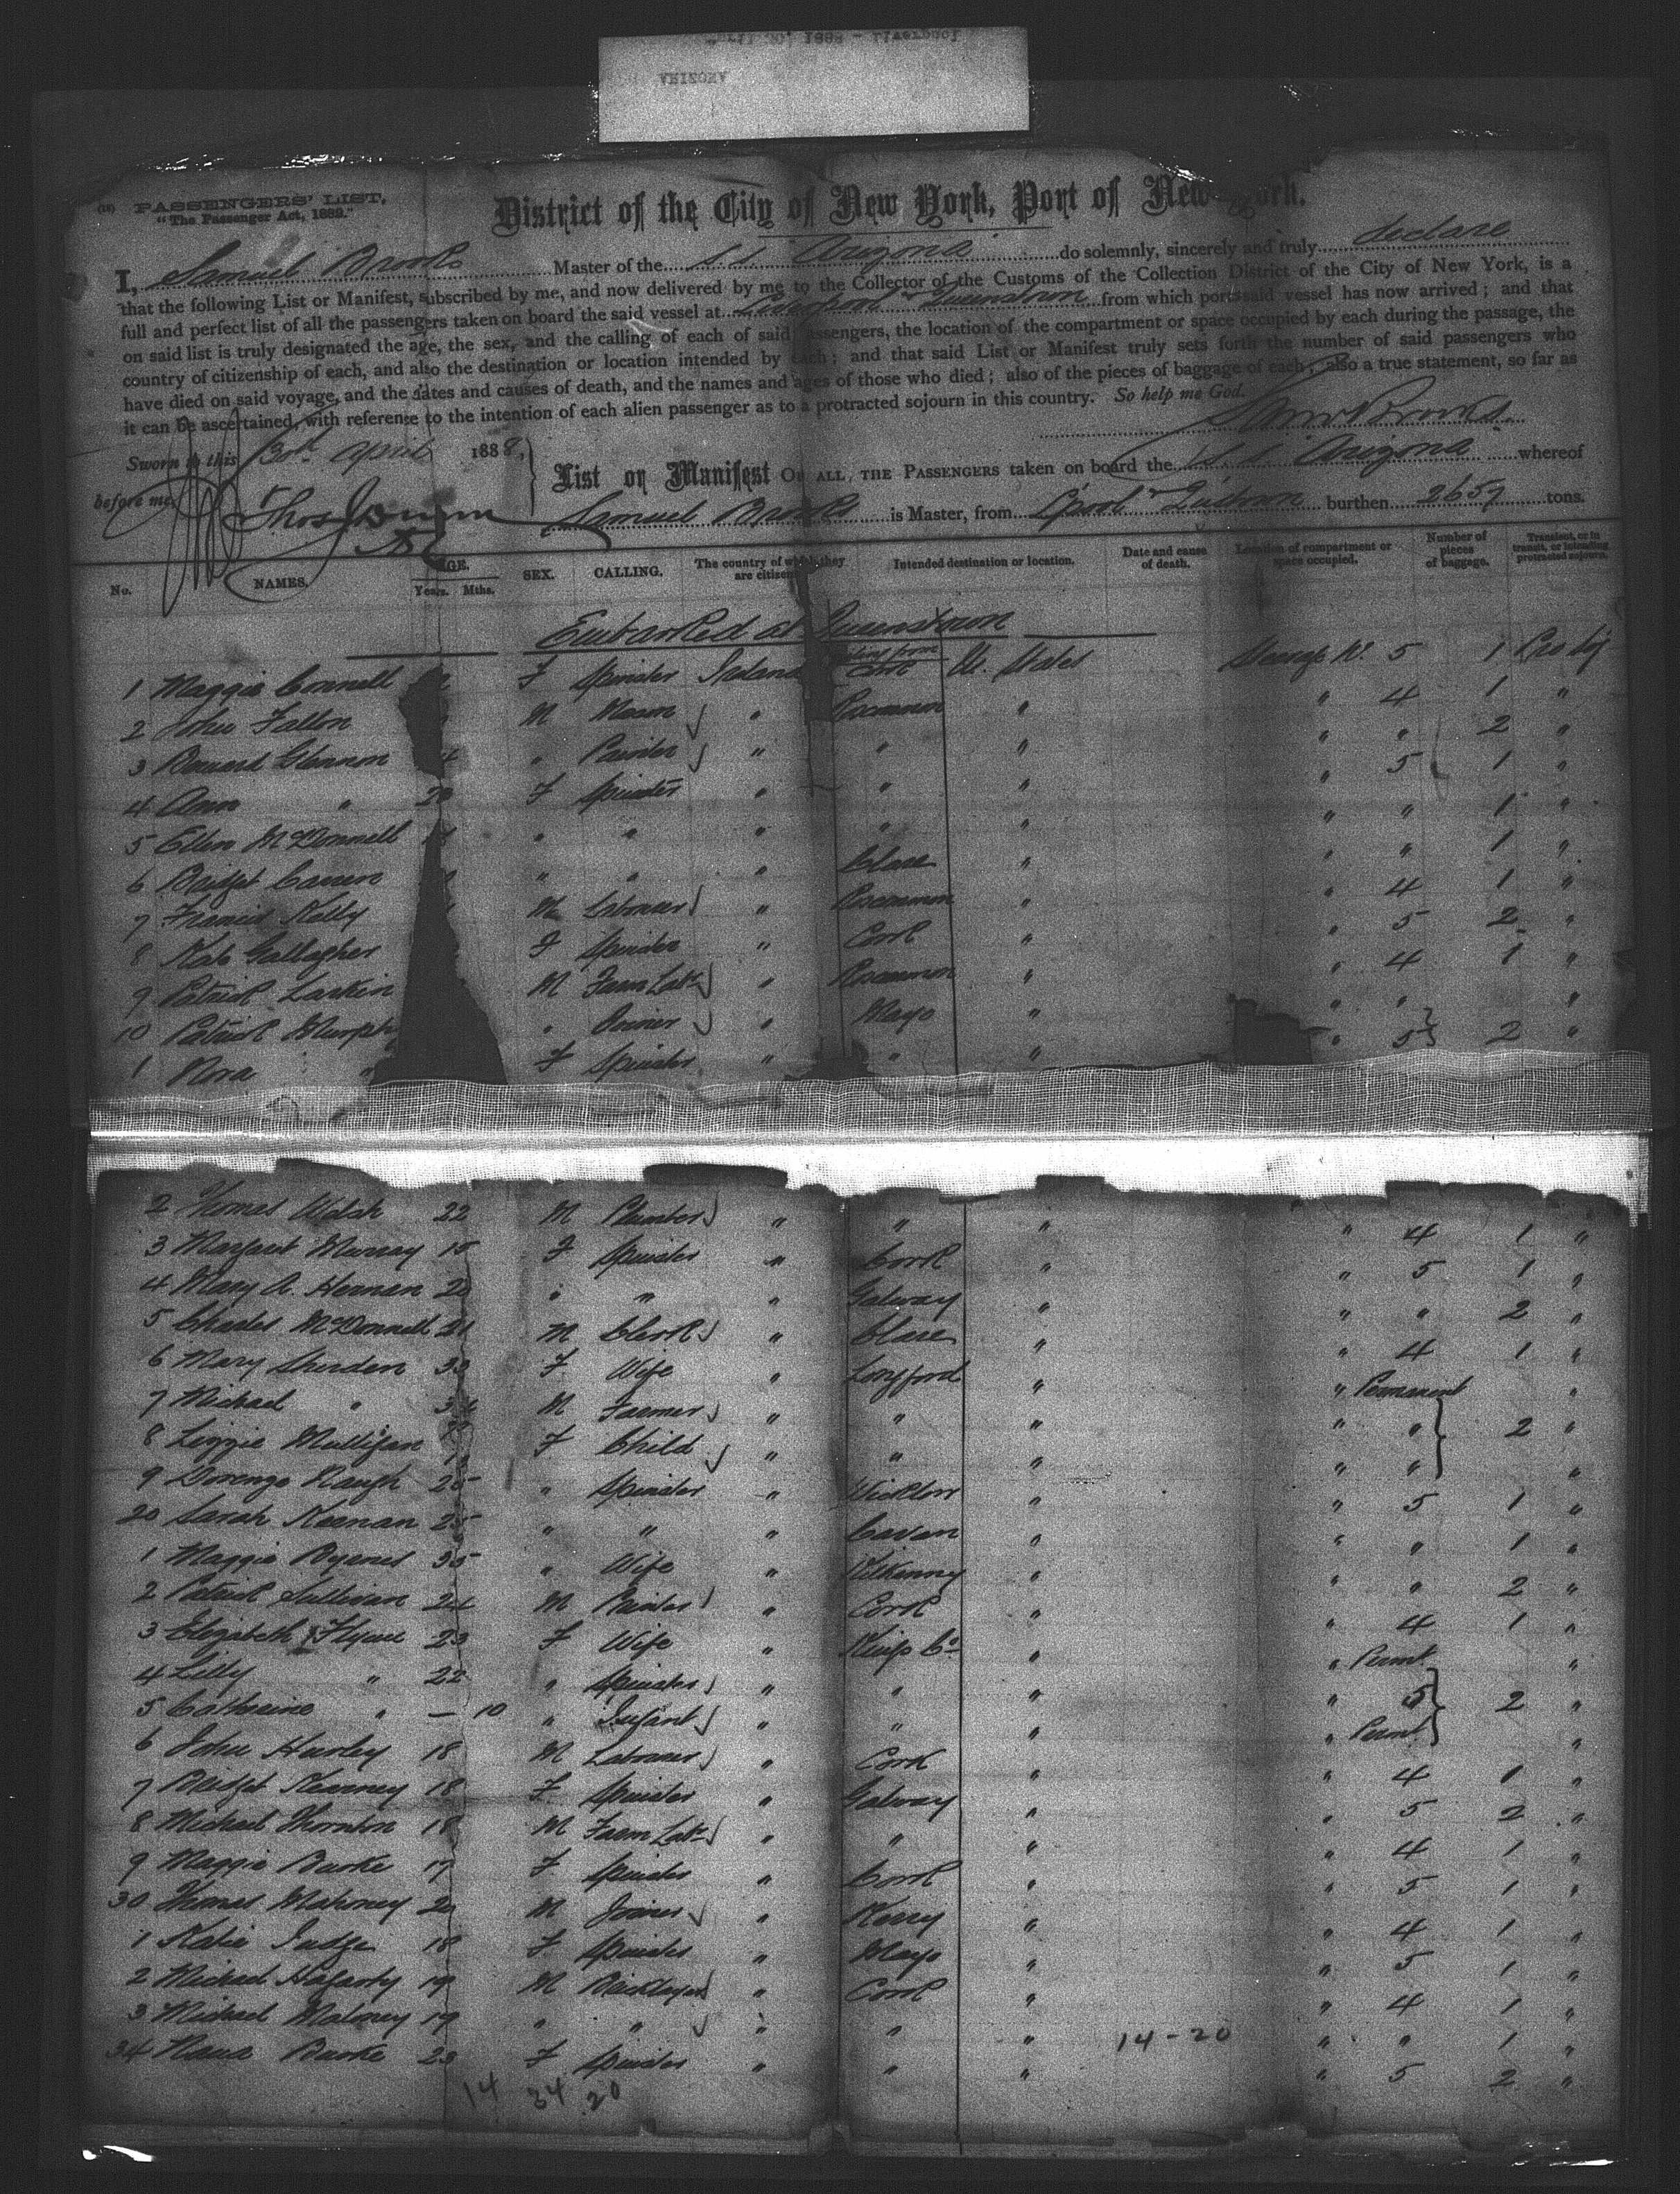 (18) PASSENGERS' LIST,
"The Passenger Act, 1882."
District of the City of New York, Port of New York.
I, Samuel Brooks Master of the s.s. Arizona do solemnly, sincerely and truly declare
that the following List or Manifest, subscribed by me, and now delivered by me to the Collector of the Customs of the Collection District of the City of New York, is a
full and perfect list of all the passengers taken on board the said vessel at Liverpool & Queenstown from which port said vessel has now arrived; and that
on said list is truly designated the age, the sex, and the calling of each of said passengers, the location of the compartment or space occupied by each during the passage, the
country of citizenship of each, and also the destination or location intended by each; and that said List or Manifest truly sets forth the number of said passengers who
have died on said voyage, and the dates and causes of death, and the names and ages of those who died; also of the pieces of baggage of each; also a true statement, so far as
it can be ascertained, with reference to the intention of each alien passenger as to a protracted sojourn in this country. So help me God.
Saml Brooks
Sworn to this 30th April 1888,
before me
List or Manifest OF ALL THE PASSENGERS taken on board the s.s. Arizona whereof
Samuel Brooks is Master, from L'pool & Q'town burthen 2657 tons.
No. NAMES. AGE. Years. Mths. SEX. CALLING. The country of which they are citizens. Intended destination or location. Date and cause of death. Location of compartment or space occupied. Number of pieces of baggage. Transient, or in transit, or intending protracted sojourn.
Embarked at Queenstown
1 Maggie Connell F Spinster Ireland Cork U. States Steerage No. 5 1
2 John Fallon M Mason " Roscommon " " 4 1 "
3 Bernard Glennon " Painter " " " " " 2 "
4 Ann " 20 F Spinster " " " " 5 1 "
5 Ellen McDonnell " " " " " " " 1 "
6 Bridget " " " Clare " " " 1 "
7 Francis Kelly M Labourer " Roscommon " " 4 1 "
8 Kate Gallagher F Spinster " Cork " " 5 2 "
9 Patrick Larkin M Farm Labr " Roscommon " " 4 1 "
10 Patrick Murphy " Joiner " Mayo " " " "
1 Nora " F Spinster " " " " 5 2 "
2 Thomas Walsh 22 M Plumber " " " " 4 1 "
3 Margaret Murray 18 F Spinster " Cork " " 5 1 "
4 Mary A. Hernan 20 " " " Galway " " " 2 "
5 Charles McDonnell 21 M Clerk " Clare " " 4 1 "
6 Mary Sheridan 33 F Wife " Longford " " Permanent "
7 Michael " 34 M Farmer " " " " " 2 "
8 Lizzie Mulligan F Child " " " " " "
9 Keogh 25 " Spinster " Wicklow " " 5 1 "
20 Sarah Keenan 25 " " " Cavan " " " 1 "
1 Maggie Byrnes 35 " Wife " Kilkenny " " " 2 "
2 Patrick Sullivan 24 M Painter " Cork " " 4 1 "
3 Elizabeth Flynn 23 F Wife " Kings Co. " " Permt. "
4 Lilly " 22 " Spinster " " " " 5 2 "
5 Catherine " — 10 " Infant " " " " Permt. "
6 John Hurley 18 M Labourer " Cork " " 4 1 "
7 Bridget Kearney 18 F Spinster " Galway " " 5 2 "
8 Michael Thornton 18 M Farm Labr " " " " 4 1 "
9 Maggie Burke 17 F Spinster " Cork " " 5 1 "
30 Thomas Mahoney 20 M Joiner " Kerry " " 4 1 "
1 Katie Judge 18 F Spinster " Mayo " " 5 1 "
2 Michael Hagarty 19 M Bricklayer " Cork " " 4 1 "
3 Michael Maloney 19 " " " " " 14-20 " " 1 "
34 Nana Burke 23 F Spinster " " " " 5 2 "
14 34 20